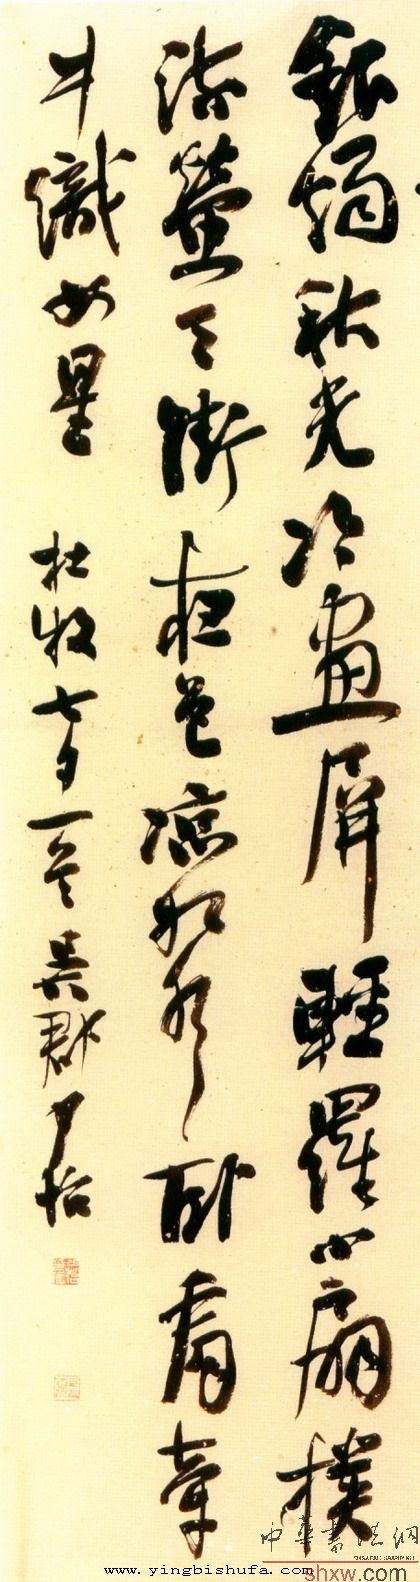 銀燭秋光冷畫屏輕羅小扇撲
流螢天街夜色涼如水卧看牽
牛織女星 杜牧七夕一首 吳郡
中華書法網
shxw.com
www.yingbishufa.com